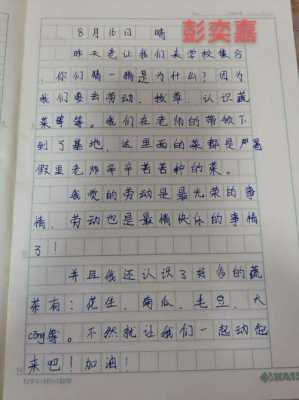 8月16日 晴
彭奕嘉
昨天老让我们来学校集合
，你们猜一猜是为什么？因为
我们要去劳动，拔草，认识蔬
菜等等。我们在老师的带领下
到了基地，这里面的菜都是严暑
假里老师辛辛苦苦种的菜。
我觉的劳动是是最光荣的事
情，劳动也是最愉快乐的事情
了！
并且我还认识了许多的蔬
菜有：花生、南瓜、毛豆、大
cōng等。不然就让我们一起动起
来吧！加油！